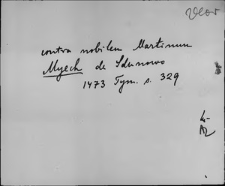 contra nobilem Martinum
Myech de Sdunowo
1473 Tym. s. 329